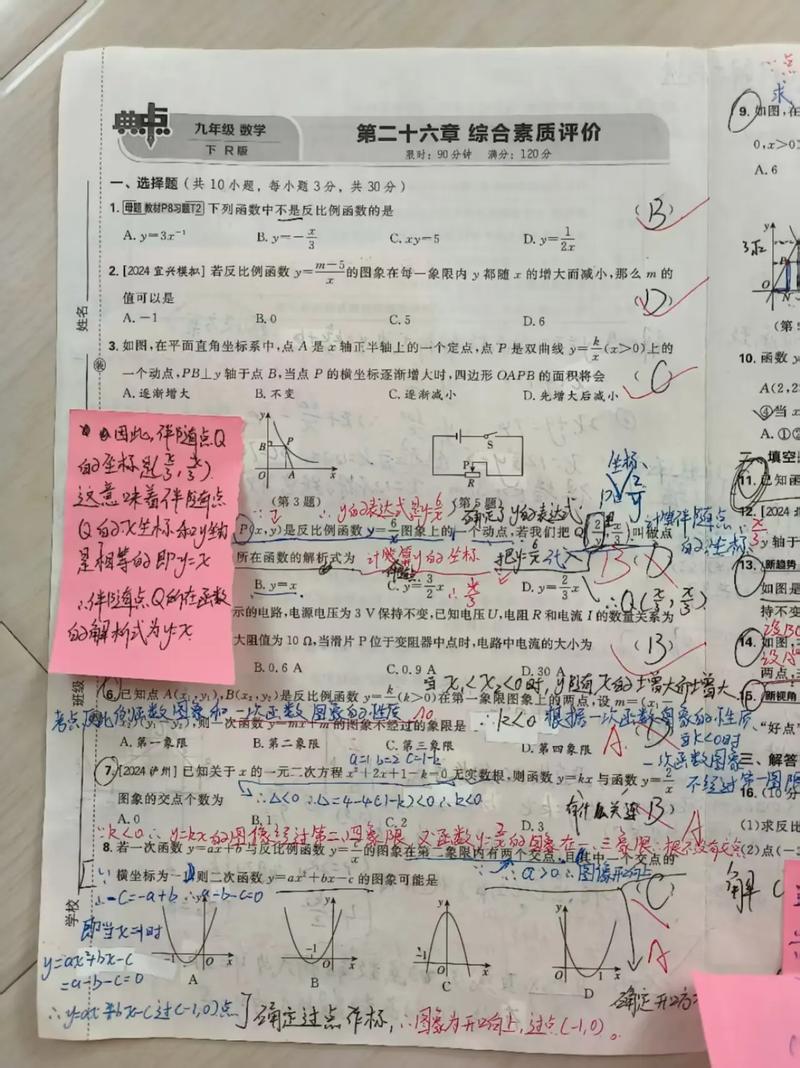 典点
九年级 数学
下 R版
第二十六章 综合素质评价
限时：90分钟 满分：120分
一、选择题（共10小题，每小题3分，共30分）
1. 母题 教材P8习题T2 下列函数中不是反比例函数的是 （B）
A. y=3x⁻¹ B. y=-x/3 C. xy=5 D. y=1/2x
2. [2024 宜兴模拟] 若反比例函数 y=(m-5)/x 的图象在每一象限内 y 都随 x 的增大而减小，那么 m 的
值可以是 （D）
A. -1 B. 0 C. 5 D. 6
3. 如图，在平面直角坐标系中，点 A 是 x 轴正半轴上的一个定点，点 P 是双曲线 y=k/x(x>0)上的
一个动点，PB⊥y 轴于点 B，当点 P 的横坐标逐渐增大时，四边形 OAPB 的面积将会 （C）
A. 逐渐增大 B. 不变 C. 逐渐减小 D. 先增大后减小
因此，伴随点Q
的坐标是(x/3, x/3)
这意味着伴随点
Q的x坐标和y坐标
是相等的即y=x
∴伴随点Q所在函数
的解析式为y=x
y B P O A x
S P R
（第3题） （第5题）
坐标
∴y的表达式是y=6/x 确定了y的表达式
P(x,y)是反比例函数 y=6/x 图象上的一个动点，若我们把 Q 叫做点
计算伴随点
的坐标
所在函数的解析式为 计算y的坐标 把y=6/x代入 B
B. y=x C. y=3/2x D. y=2/3x
∴Q(x/3, x/3)
示的电路，电源电压为 3 V 保持不变，已知电压U，电阻 R 和电流 I 的数量关系为
大阻值为 10 Ω，当滑片 P 位于变阻器中点时，电路中电流的大小为 （B）
B. 0.6 A C. 0.9 A D. 30 A
当x₁<x₂<0时，y随着x的增大而增大
6. 已知点 A(x₁,y₁),B(x₂,y₂)是反比例函数 y=k/x(k>0)在第一象限图象上的两点，设 m=(x₁
考点反比例函数图象和一次函数图象的性质 ∴k<0 根据一次函数图象的性质
，则一次函数 y=mx+m 的图象不经过的象限是
A. 第一象限 B. 第二象限 C. 第三象限 D. 第四象限 A
当k<0时
一次函数图象
不经过第一象限
a=1 b=2 c=1-k
7. [2024 泸州] 已知关于 x 的一元二次方程 x²+2x+1-k=0 无实数根，则函数 y=kx 与函数 y=2/x
图象的交点个数为 ∴△<0 ∴△=4-4(1-k)<0 ∴k<0 有什么关连 （B）
A. 0 B. 1 C. 2 D. 3
A
∵k<0 ∴y=kx的图像经过第二、四象限 又函数y=2/x的图象在一、三象限
8. 若一次函数 y=ax+b 与反比例函数 y=c/x 的图象在第二象限内有两个交点，且其中一个交点的
横坐标为-1，则二次函数 y=ax²+bx-c 的图象可能是 （C）
∴a>0 ∴图像开口向上
∴-c=-a+b ∴a-b-c=0
即当x=-1时
y=ax²+bx-c
=a-b-c=0
A B C D
A
∴y=ax²+bx-c过(-1,0)点 确定过点坐标，∴图象为开口向上，过点(-1,0)。
姓名
装
班级
学校
9. 如图，在
0,x>0
A. 6
（第9
10. 函数 y
A(2,2
④当 x
A. ①②
二、填空
11. 已知函
12. [2024
y轴于
13. 新趋势
如图是
持不变
14. 如图，
两点，
15. 新视角
“好点”
三、解答
16. (10分
(1)求反比
(2)点(-
解